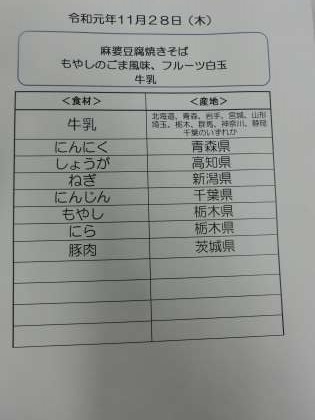 令和元年11月28日（木）
麻婆豆腐焼きそば
もやしのごま風味、フルーツ白玉
牛乳
＜食材＞ ＜産地＞
牛乳 北海道、青森、岩手、宮城、山形
埼玉、栃木、群馬、神奈川、静岡
千葉のいずれか
にんにく 青森県
しょうが 高知県
ねぎ 新潟県
にんじん 千葉県
もやし 栃木県
にら 栃木県
豚肉 茨城県